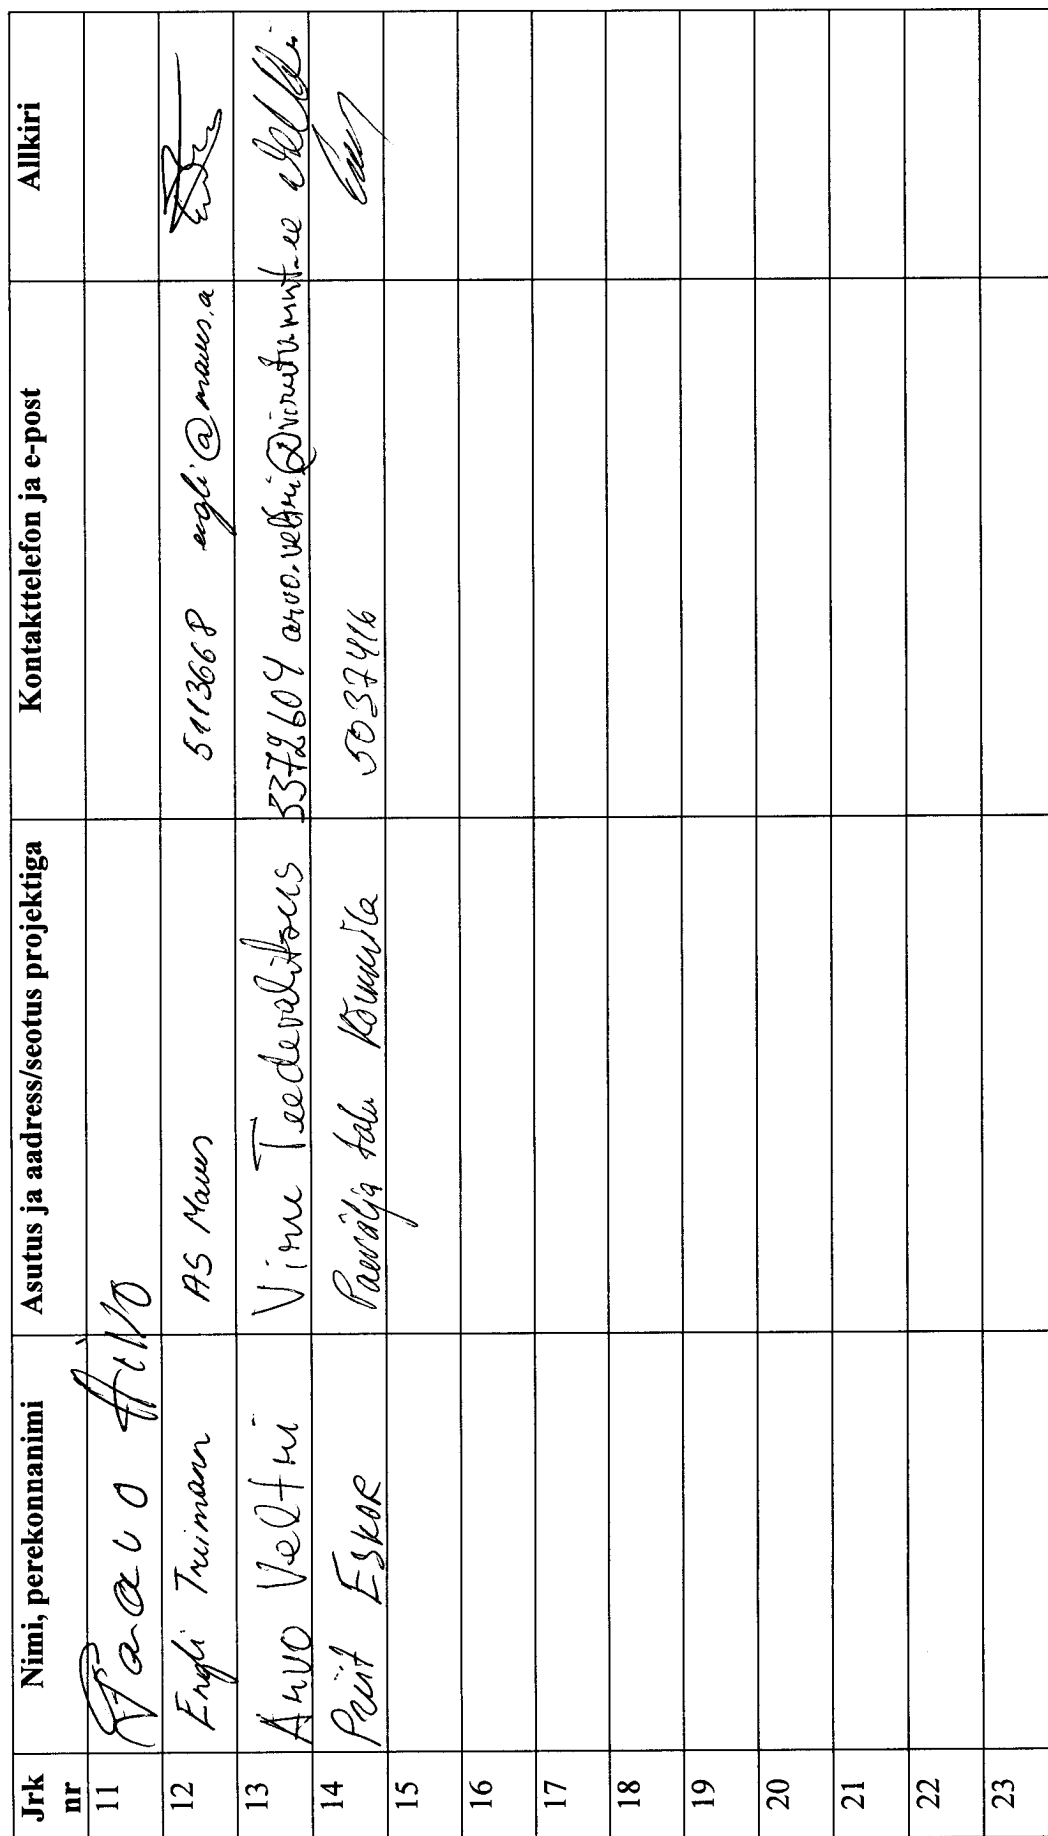 Jrk nr Nimi, perekonnanimi Asutus ja aadress/seotus projektiga Kontakttelefon ja e-post Allkiri
11
12 Engli Truimann AS Maves 5113668 engli@maves.
13 Arvo Veltri Viru Teedevalitsus 3372604 arvo.veltri@
14 Priit Eskor Paevälja talu Kõrmküla 5037416
15
16
17
18
19
20
21
22
23